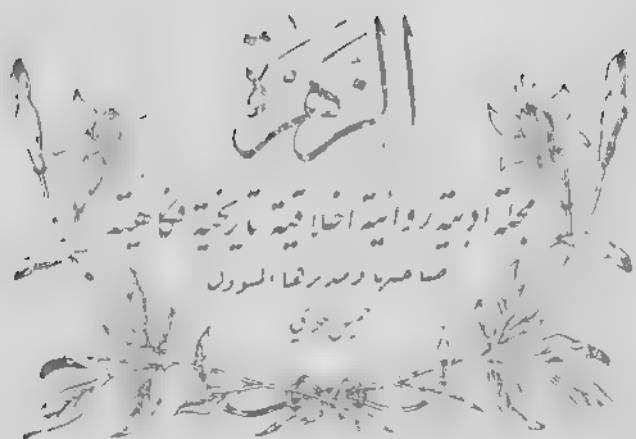 الزهرة
مجلة ادبية روائية اخلاقية تاريخية فكاهية
صاحبها ومديرها المسؤول
جميل